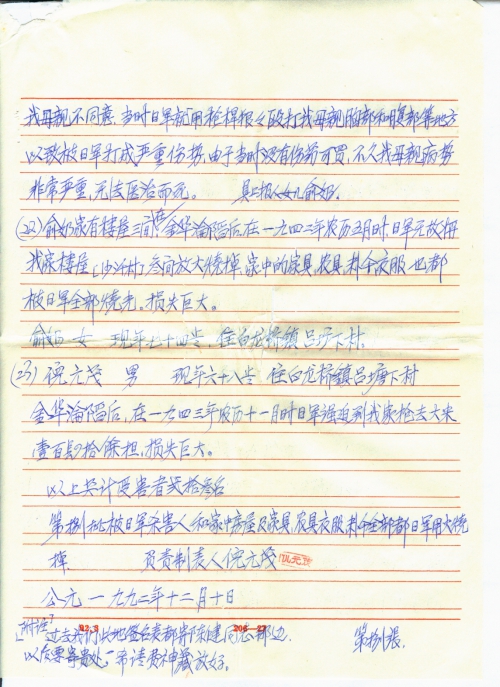 我母亲不同意,当时日军就用枪桿狠々殴打我母亲胸部和腹部等地方
以致被日军打成严重伤势,由于当时没有伤药可买,不久我母亲病势
非常严重,无法医治而死。 具上报人女儿俞奶。
(22)俞奶家有楼屋三间,金华沦陷后,在一九四二年农历五月时,日军无故把
我家楼屋 叁间放火烧掉,家中的家具,农具,剩余衣服也都
被日军全部烧光,损失巨大。
俞奶 女 现年七十四岁,住白龙桥镇吕塘下村。
(23)倪元茂 男 现年六十八岁 住白龙桥镇吕塘下村
金华沦陷后,在一九四三年农历十一月时日军强迫到我家抢去大米
壹百 拾 担,损失巨大。
以上共计受害者贰拾叁名
第捌批被日军杀害人和家中房屋及家具农具衣服,剩余全部都日军用火烧
掉。 负责制表人倪元茂
公元一九九二年十二月十日
附注: 过去我们此地签名表都寄陈建同志那边
以后要寄贵处,希请费神藏放好。 第捌张.
92.3 206—27